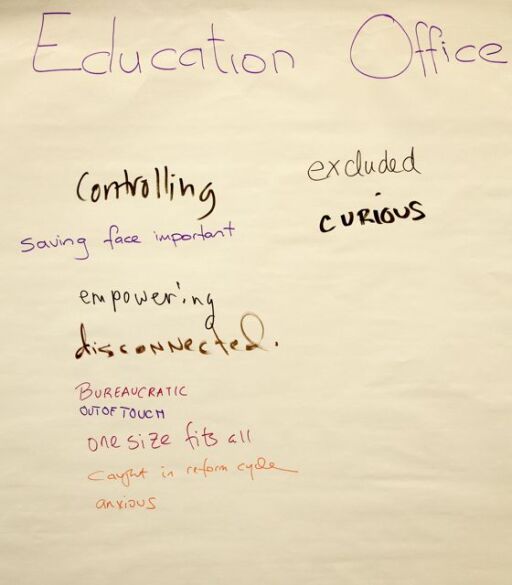 Education Office
Controlling
saving face important
empowering
disconnected.
BUREAUCRATIC
OUT OF TOUCH
one size fits all
Caught in reform cycle
anxious
excluded
CURIOUS